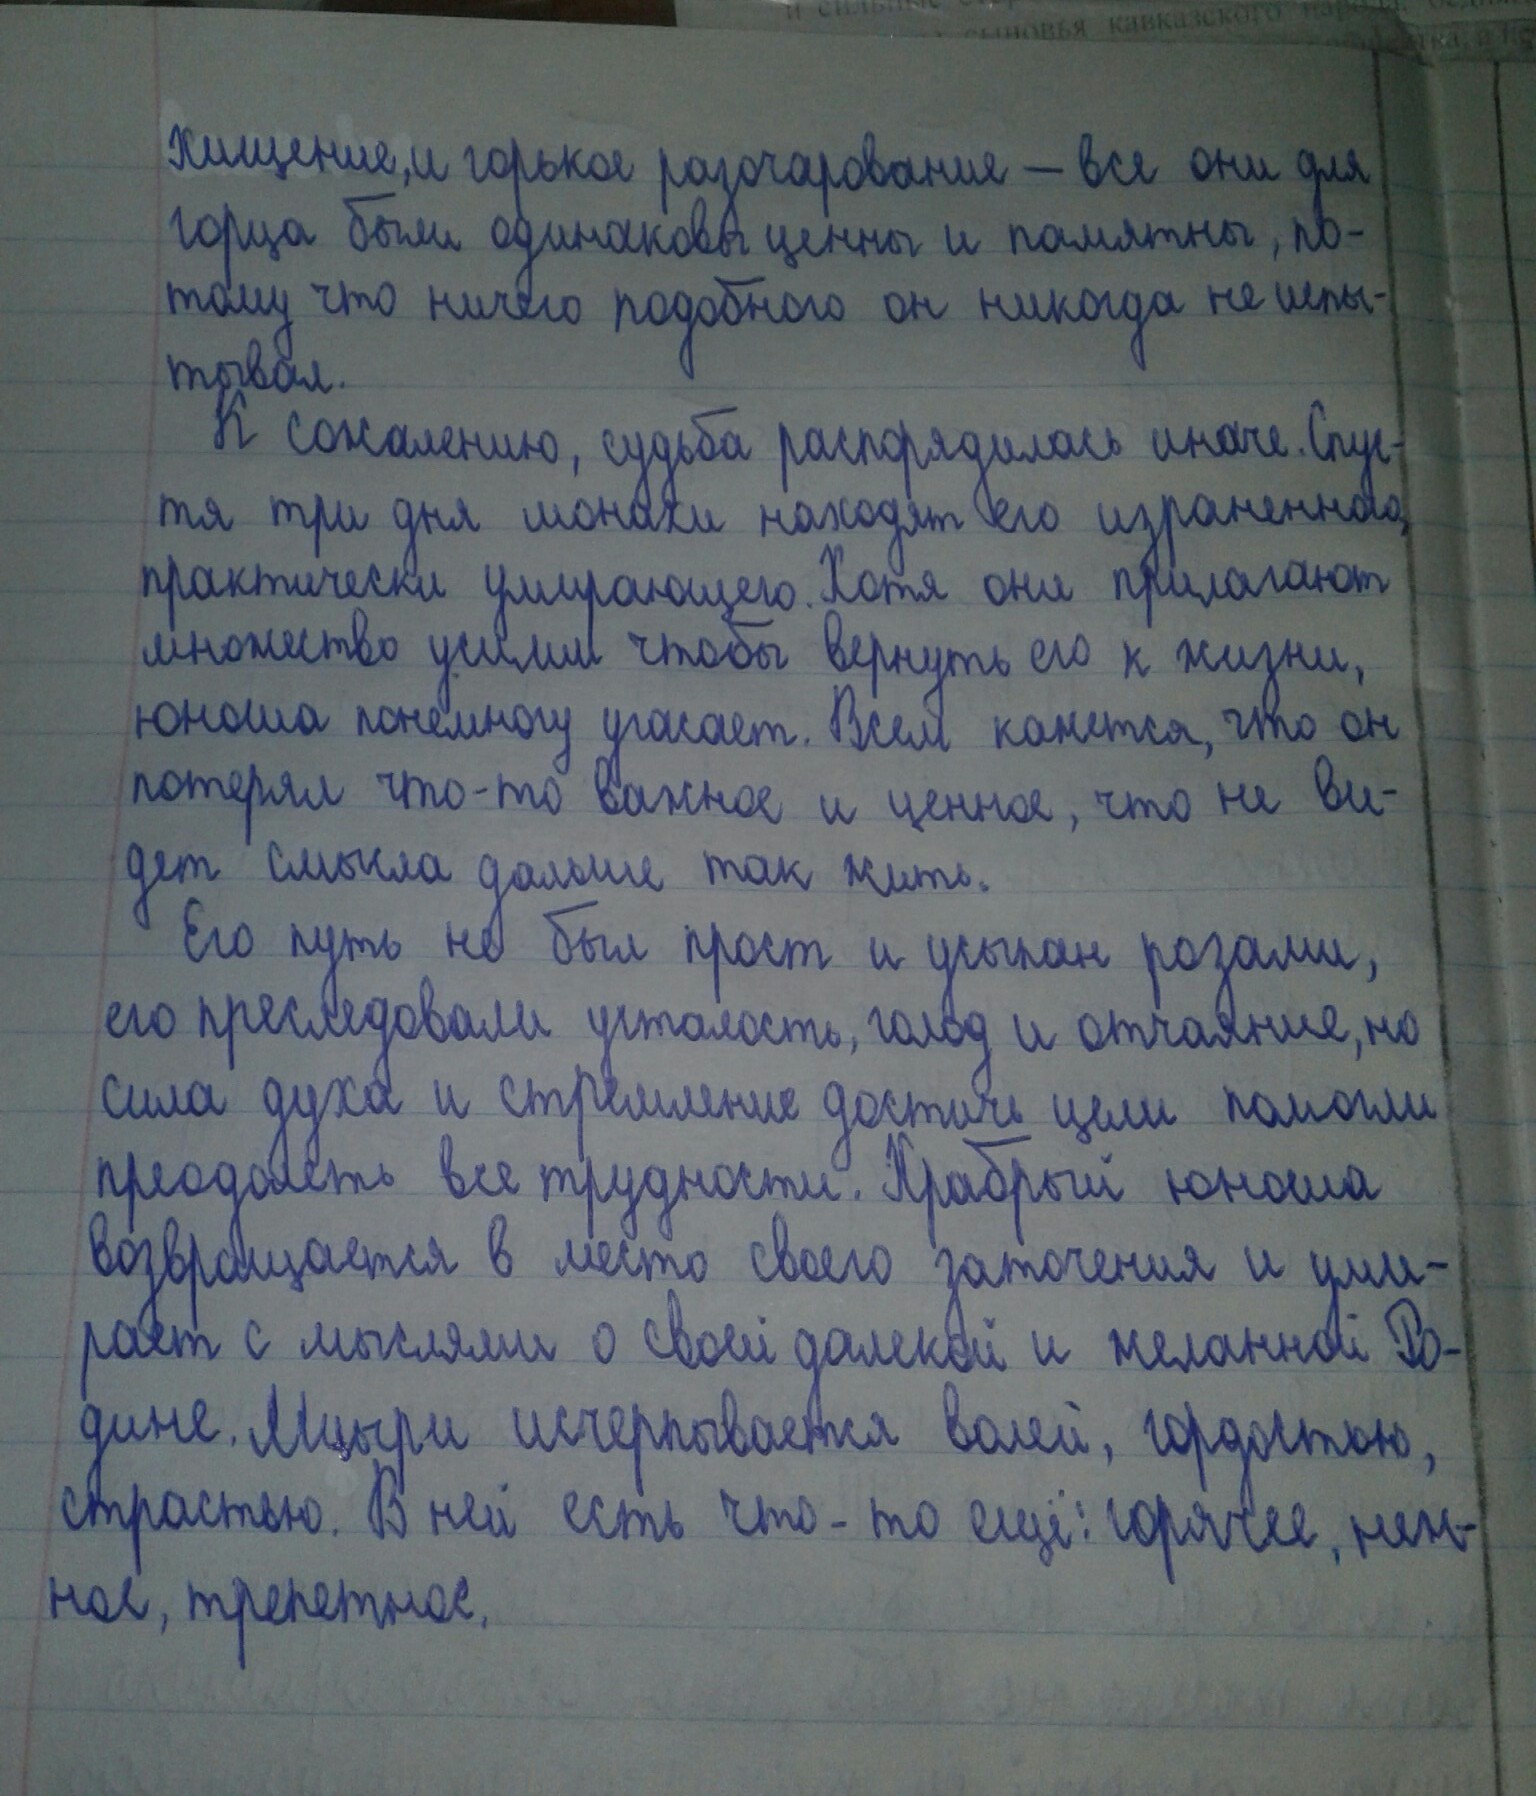 и сильные
сыновья кавказского народа,
хищение, и горькое разочарование – все они для
горца были одинаковы ценны и памятны, по-
тому что ничего подобного он никогда не испы-
тывал.
К сожалению, судьба распорядилась иначе. Спус-
тя три дня монахи находят его израненного,
практически умирающего. Хотя они прилагают
множество усилий чтобы вернуть его к жизни,
юноша понемногу угасает. Всем кажется, что он
потерял что-то важное и ценное, что не ви-
дет смысла дальше так жить.
Его путь не был прост и усыпан розами,
его преследовали усталость, голод и отчаяние, но
сила духа и стремление достичь цели помогли
преодолеть все трудности. Храбрый юноша
возвращается в место своего заточения и уми-
рает с мыслями о своей далекой и желанной Ро-
дине. Мцыри исчерпывается волей, гордостью,
страстью. В ней есть что-то ещё: горячее, неж-
ное, трепетное.